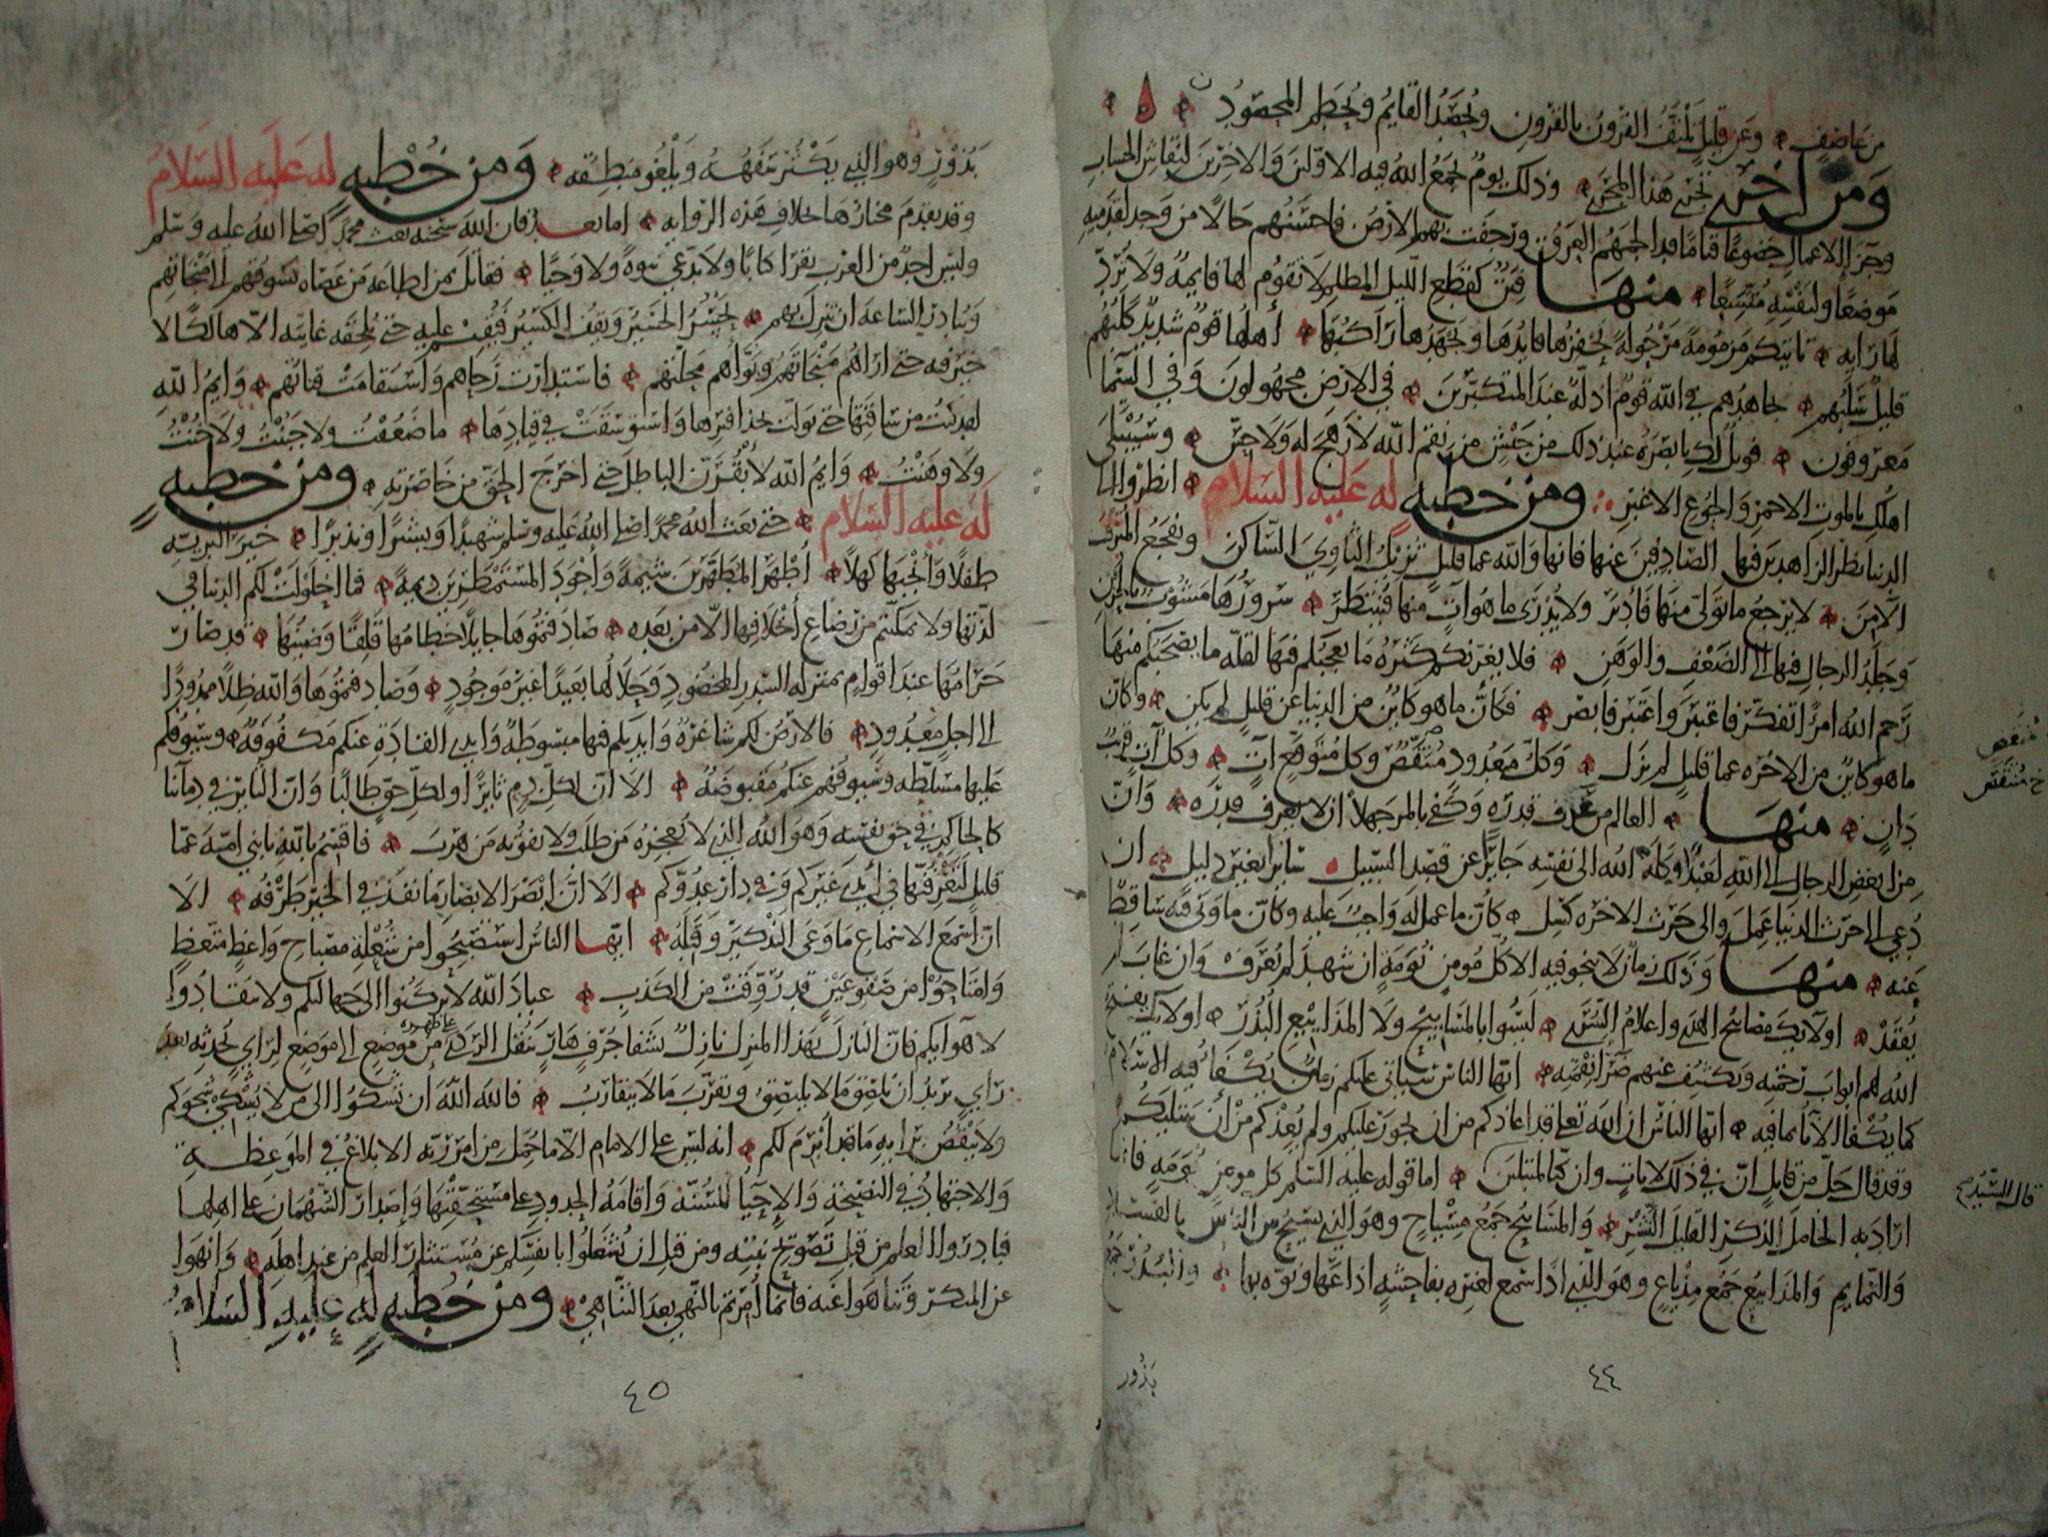 من عاصفٍ وعن قليل تلتف القرون بالقرون ويُحصد القايم ويُحطم المحصود
ومن أخرى تجري هذا المجرى وذلك يوم يجمع الله فيه الاولين والاخرين لنقاش الحساب
وجزاء الاعمال خضوعًا قيامًا قد الجمهم العرق ورجفت بهم الارض فاحسنهم حالا من وجد لقدميه
موضعًا ولنفسه متسعًا منها فتن كقطع الليل المظلم لا تقوم لها قايمة ولا تُردّ
لها راية تاتيكم مزمومة مرحولة يحفزها قايدها ويجهدها راكبها أهلها قوم شديد كلبهم
قليل سلبهم يجاهدهم في الله قوم اذلة عند المتكبرين في الارض مجهولون وفي السما
معروفون فويل لك يا بصرة عند ذلك من جيش من نقم الله لا رهج له ولا حس وسيبتلى
اهلك بالموت الاحمر والجوع الاغبر ومن خطبه له عليه السلام انظروا الى
الدنيا نظر الزاهدين فيها الصادفين عنها فانها والله عما قليل تزيل الثاوي الساكن وتفجع المترف
الآمن لا يرجع ما تولى منها فأدبر ولا يُدرى ما هو آتٍ منها فيُنتظر سرورها مشوب بالحزن
وجلد الرجال فيها إلى الضعف والوهن فلا يغرنكم كثرة ما يعجبكم فيها لقلة ما يصحبكم منها
رحم الله امرأ تفكر فاعتبر واعتبر فابصر فكأن ما هو كاين من الدنيا عن قليل لم يكن وكأن
ما هو كاين من الاخرة عما قليل لم يزل وكل معدود منتقص وكل متوقع آتٍ وكل آتٍ قريب
دانٍ منها العالم من عرف قدره وكفى بالمرء جهلا أن لا يعرف قدره وان
من ابغض الرجال الى الله لعبدًا وكله الله الى نفسه جايرًا عن قصد السبيل سايرا بغير دليل ان
دُعي الى حرث الدنيا عمل والى حرث الاخرة كسل كأن ما عمل له واجب عليه وكأن ما ونى فيه ساقط
عنه منها وذلك زمان لا ينجو فيه الا كل مومن نومة إن شهد لم يُعرف وان غاب لم
يُفقد اولايك مصابيح الهدى واعلام السرى ليسوا بالمساييح ولا المذاييع البُذر اولايك يفتح
الله لهم ابواب رحمته ويكشف عنهم ضرّاء نقمته ايها الناس سياتي عليكم زمان يُكفأ فيه الاسلام
كما يُكفأ الانا بما فيه ايها الناس ان الله تعالى قد اعاذكم من ان يجور عليكم ولم يُعذكم من أن يبتليكم
وقد قال جلّ من قايل إنّ في ذلك لايات وان كنا لمبتلين اما قوله عليه السلم كل مومن نومة فانما
اراد به الخامل الذكر القليل الشر والمساييح جمع مسياح وهو الذي يسيح بين الناس بالفساد
والنمايم والمذاييع جمع مذياع وهو الذي اذا سمع لغيره بفاحشة اذاعها ونوّه بها والبُذر جمع
منتقص
خ مُنتقص
قال السيد
بذور
٤٤
بَذُورٍ وهو الذي يكثر سفهه ويلغو منطقه ومن خُطبه له عليه السلام
وقد تقدم مختارها خلاف هذه الرواية اما بعد فان الله سبحنه بعث محمدًا صلى الله عليه وسلم
وليس احدٌ من العرب يقرا كتابا ولا يدّعي نبوة ولا وحيًا فقاتل بمن اطاعه من عصاه يسوقهم الى منجاتهم
ويبادر الساعة ان تنزل بهم يحسر الحسير ويقف الكسير فيقيم عليه حتى يلحقه غايته الا هالكًا لا
خير فيه حتى اراهم منجاتهم وبوّأهم محلتهم فاستدارت رحاهم واستقامت قناتهم وايم الله
لقد كنت من ساقتها حتى تولت بحذافيرها واستوسقت في قيادها ما ضعفت ولا جبنت ولا خنت
ولا وهنت وايم الله لأبقرن الباطل حتى اخرج الحق من خاصرته ومن خطبه
له عليه السلام حتى بعث الله محمدًا صلى الله عليه وسلم شهيدًا وبشيرًا ونذيرًا خير البرية
طفلًا وأنجبها كهلًا أطهر المطهرين شيمةً وأجود المستمطرين ديمةً فما احلولت لكم الدنيا في
لذتها ولا تمكنتم من رضاع أخلافها الا من بعده صادفتموها جايلًا خطامها قلقًا وضينها قد صار
حرامها عند اقوام بمنزلة السدر المخضود وحلالها بعيدًا غير موجود وصادفتموها والله ظلًا ممدودًا
الى اجل معدود فالارض لكم شاغرة وايديكم فيها مبسوطة وايدي القادة عنكم مكفوفة وسيوفكم
عليها مسلطة وسيوفهم عنكم مقبوضة الا ان لكل دم ثايرًا ولكل حق طالبًا وان الثاير في دمآئنا
كالحاكم في حق نفسه وهو الله الذي لا يعجزه من طلب ولا يفوته من هرب فاقسم بالله يا بني أمية عمّا
قليل لتعرفنّها في أيدي غيركم وفي دار عدوكم الا ان ابصر الابصار ما نفذ في الخير طرفه الا
ان اسمع الاسماع ما وعى التذكير وقبله ايها الناس استصبحوا من شعلة مصباح واعظٍ متعظ
وامتاحوا من صفو عين قد رُوّقت من الكدر عباد الله لا تركنوا الى جهالتكم ولا تنقادوا
لاهوايكم فان النازل بهذا المنزل نازل بشفا جرف هار ينقل الردى على ظهره من موضع الى موضع لرأي يُحدثه بعد
رأي يريد أن يُلصق ما لا يلتصق ويقرّب ما لا يتقارب فالله الله أن تشكوا الى من لا يُشكي شجوكم
ولا ينقض برايه ما قد أبرم لكم انه ليس على الامام الا ما حُمّل من امر ربه الابلاغ في الموعظة
والاجتهاد في النصيحة والإحيا للسنة واقامة الحدود على مستحقيها وإصدار السُّهمان على اهلها
فبادروا العلم من قبل تصويح نبته ومن قبل ان تُشغلوا بانفسكم عن مستثار العلم من عند اهله وانهوا
عن المنكر وتناهوا عنه فانما أمرتم بالنهي بعد التناهي ومن خُطبه له عليه السلام
٤٥